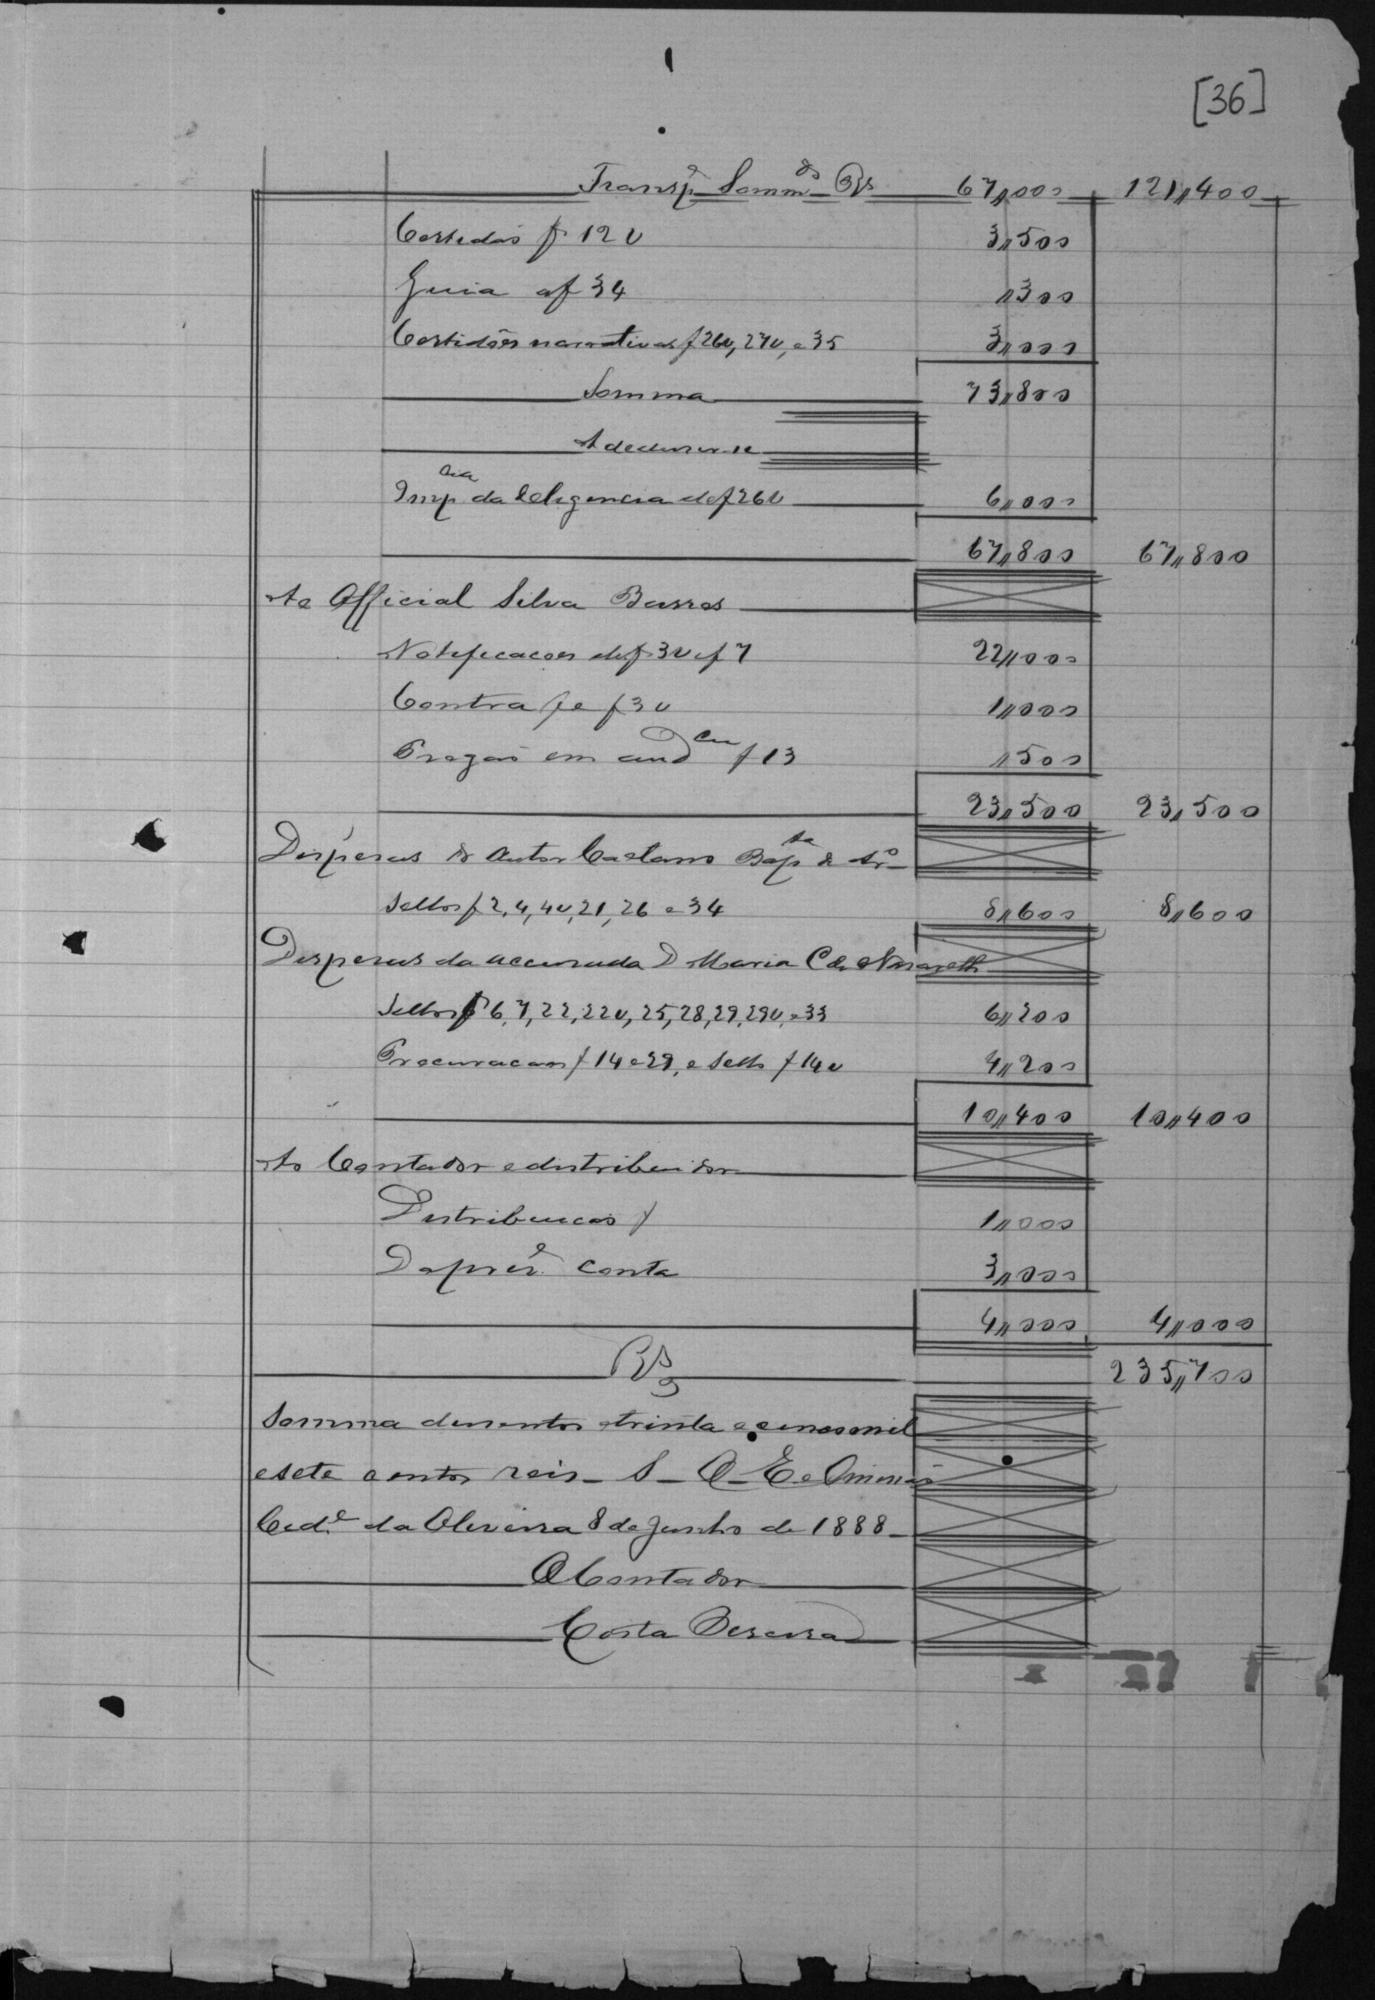 [36]
Transpe Sommdo Rs 67,,000 121,,400
Certidão f 12 v 3,,500
Guia af 34 ,,300
Certidões narrativas f 26v, 27v, e 35 3,,000
Somma 73,,800
A deduzir-se
Impcia da deligencia de f 26 v 6,,000
67,,800 67,,800
Ao Official Silva Barros
Notificacoes de f 3 v e f 7 22,,000
Contra fe f 3 v 1,,000
Pregão em audcia f 13 ,,500
23,,500 23,,500
Despesas do Autor Caetano Bapta de
Sellos f 2, 4, 4v, 21, 26 e 34 8,,600 8,,600
Despesas da accusada D Maria C de Nasareth
Sellos f 6, 7, 22, 22v, 25, 28, 29, 29v, e 33 6,,200
Procuracoes f 14 e 29, e Sello f 14 v 4,,200
10,,400 10,,400
Ao Contador e distribuidor
Destribuicão f 1,,000
Da prese conta 3,,000
4,,000 4,,000
Rs 235,,700
Somma dusentos e trinta e cinco mil
e sete centos reis - S - O - E e Omissão
Cide da Oliveira 8 de Junho de 1888 -
O Contador
Costa Beserra